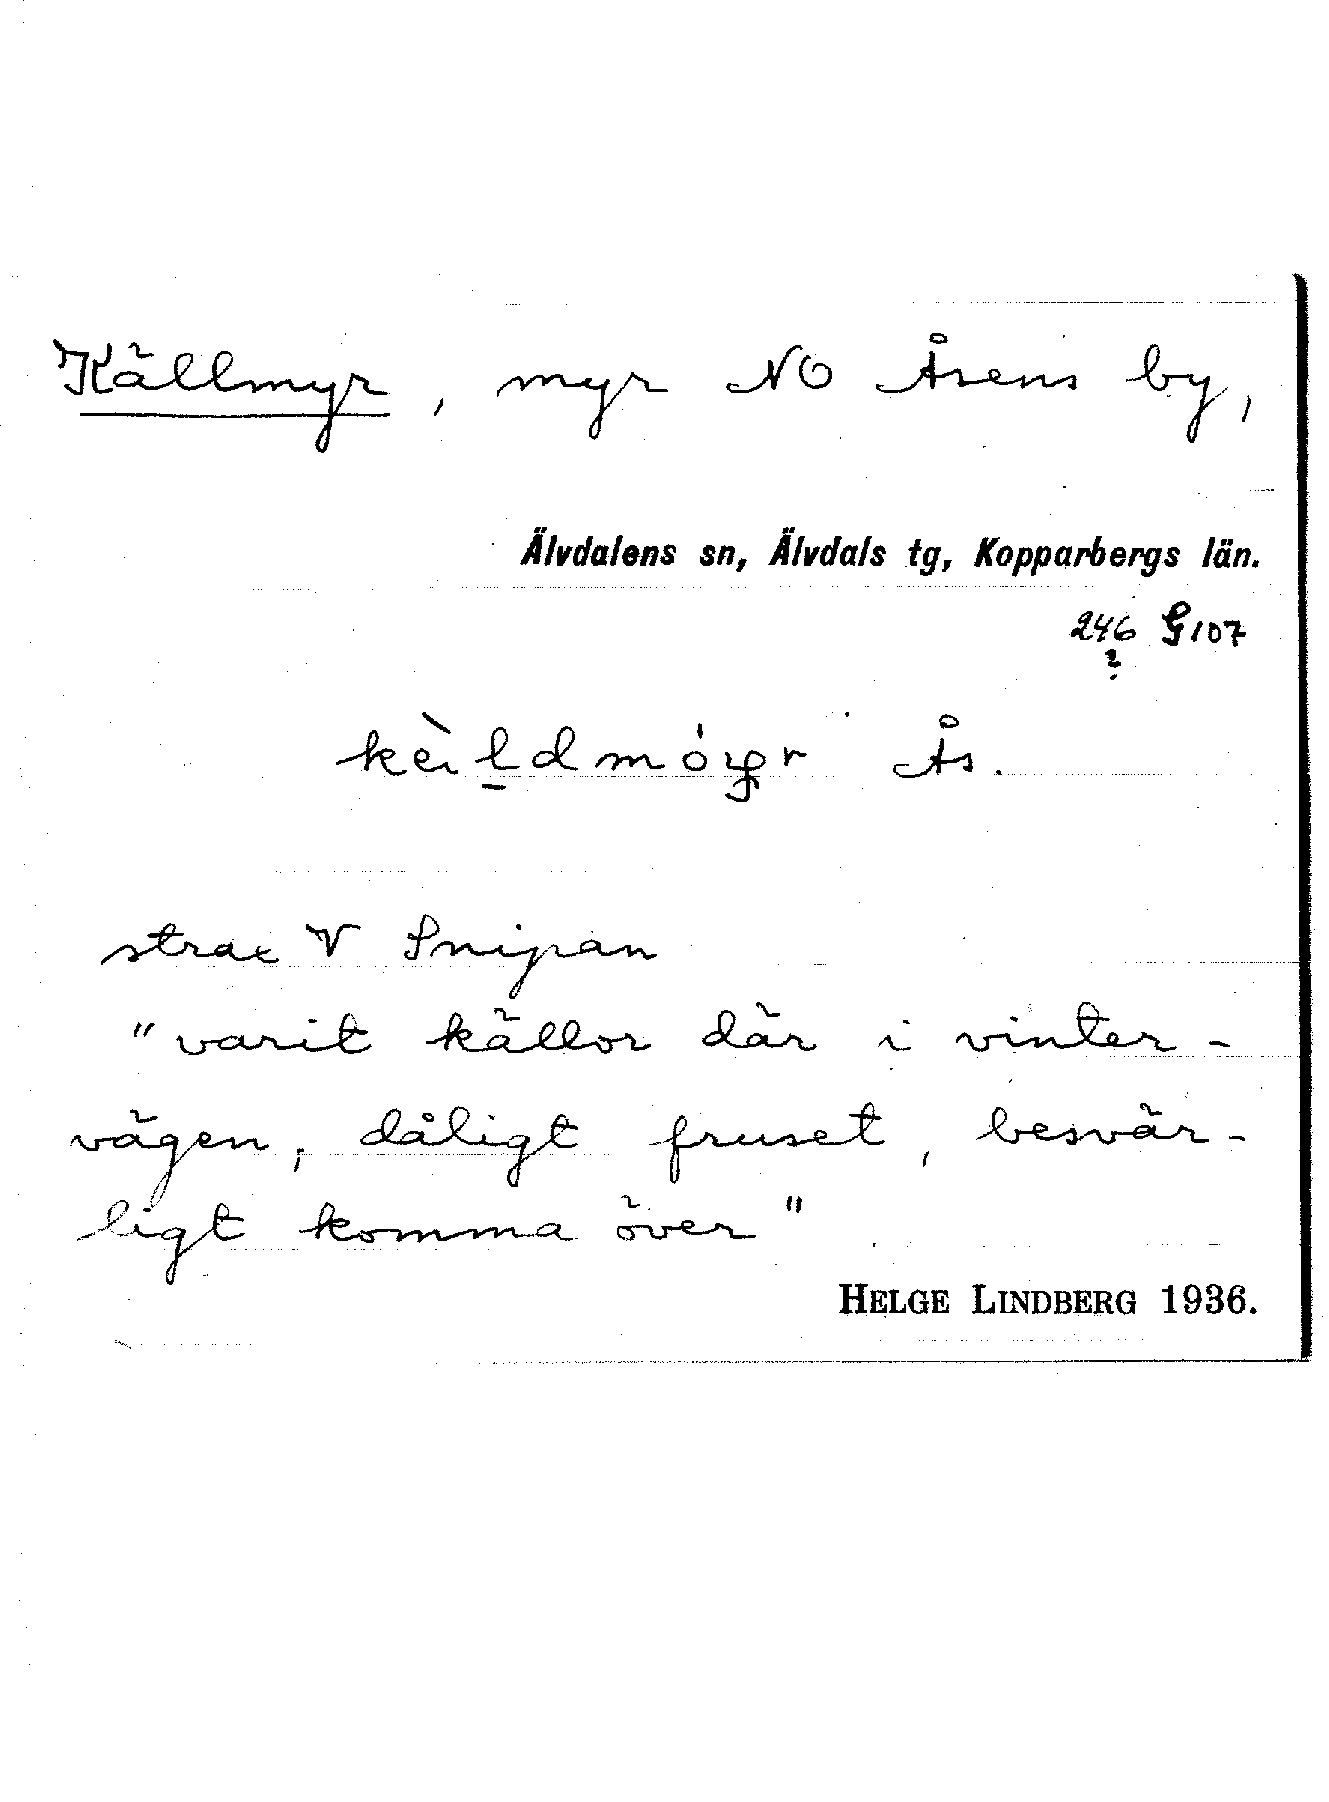 Källmyr, myr NO Åsens by,
Älvdalens sn, Älvdals tg, Kopparbergs län.
246 G107
?
Ås.
strax V Snipan
"varit källor där i vinter-
vägen, dåligt fruset, besvär-
ligt komma över"
HELGE LINDBERG 1936.